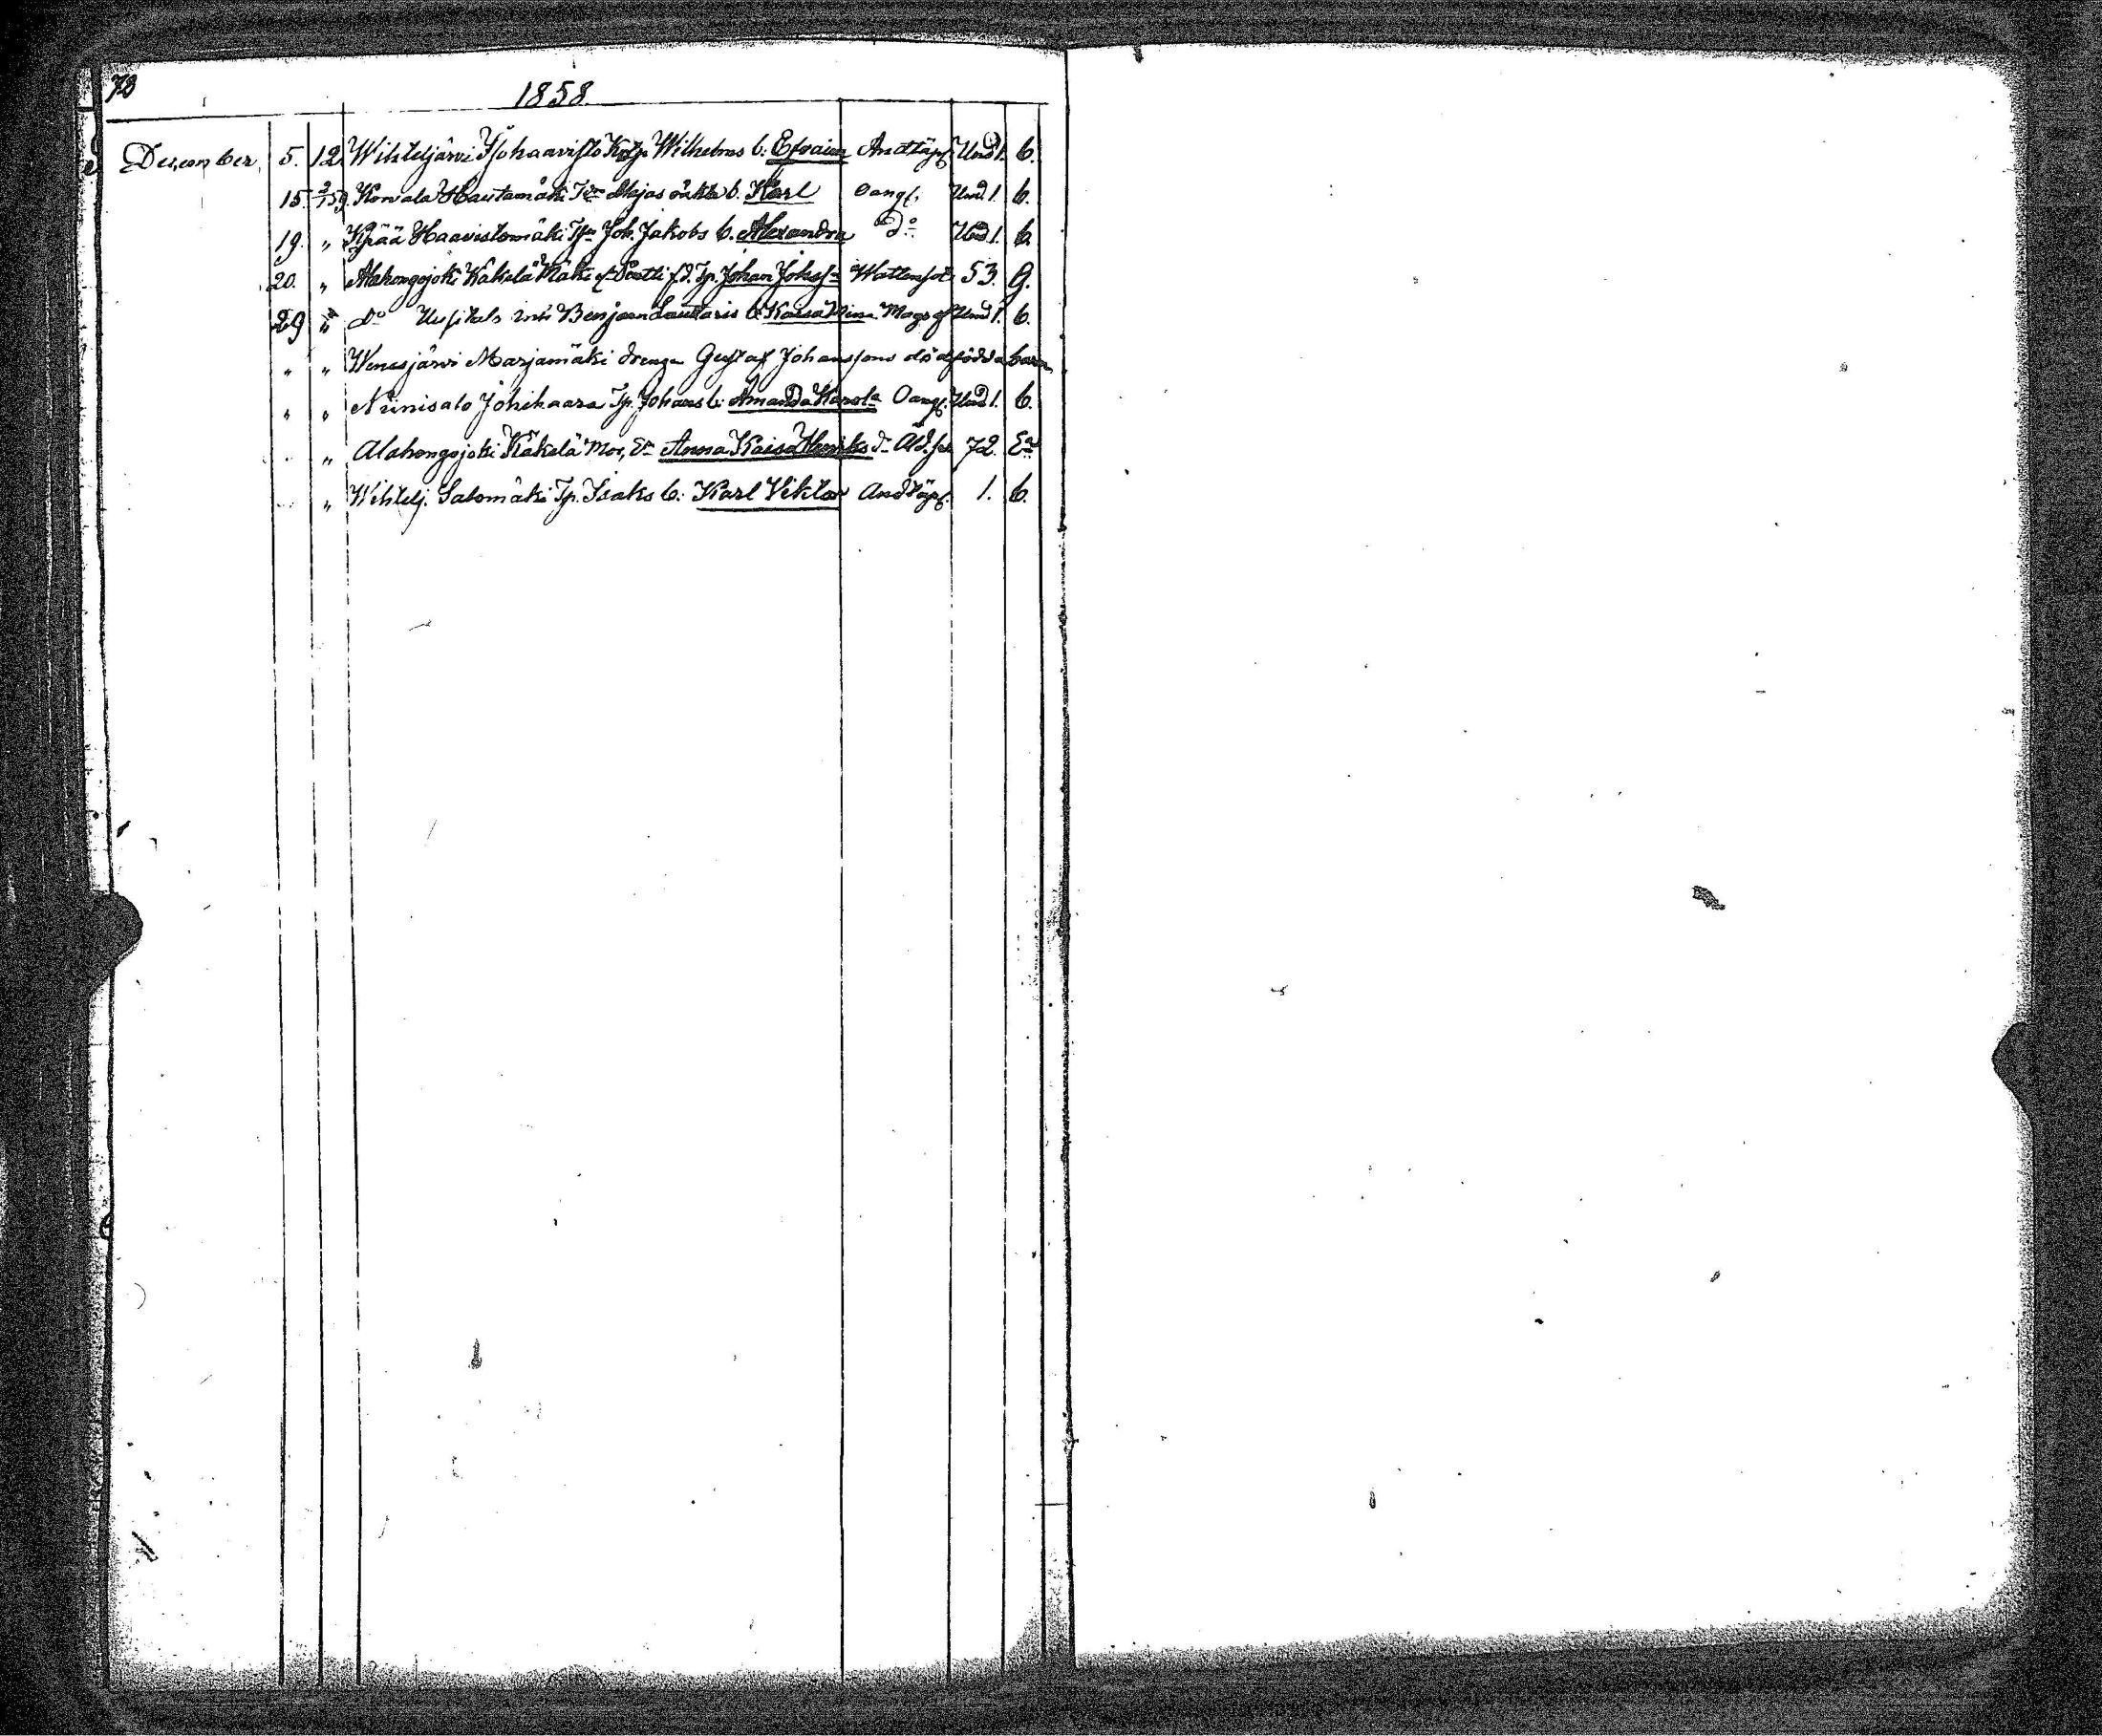 78
1858
December, 5. 12. Wihteljärvi Isohaavisto Wilhelms b. Efraim Andtäpf. Und 1. b.
15. 2/1 59. Korvala Hautamäki oäkta b. Karl Oangf. Und 1. b.
19. " Kypää Haavistomäki Joh. Jakobs b. Alexandra D:o Und 1. b.
20. " Alahongojoki Käkelä Mäki f.d. Tp. Johan Johsn Wattensot 53. G.
29 " d:o Uusitalo inh Benjam Lautaris b. Kaisa Mina Magref Und 1. b.
" " Wenesjärvi Marjamäki drengn Gustaf Johanssons dödfödda barn
" " Niinisalo Johikaara Tp. Johans b. Amanda Karola Oangf. Und 1. b.
" " Alahongojoki Käkelä Mor, En Anna Kaisa Henriks dr Åld. 72. En
" " Wihtelj. Salomäki Tp. Isaks b. Karl Viktor Andtäpf. 1. b.